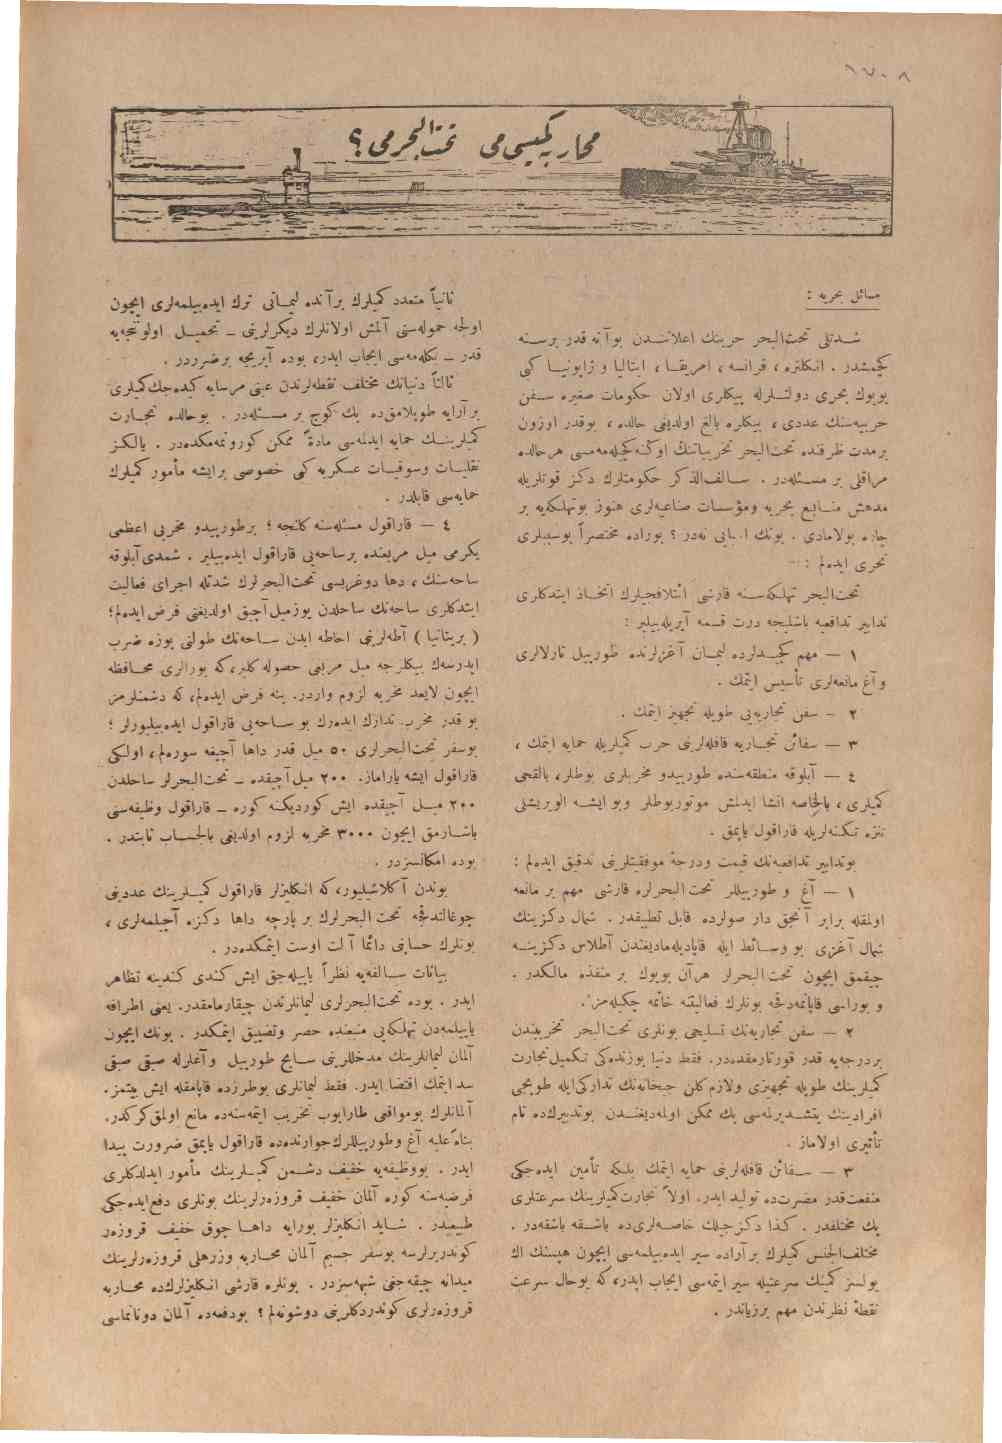 ١٧٠٨
محاربه گمیسی می تحت البحر می ؟
مسائل بحریه :
شـدتلی تحت‌البحر حربنك اعلانـندن بوآنه قدر برسـنه
كچمشدر . انكلتره ، فرانسه ، امریقـا ، ایتالیا و ژاپونیـا كبی
بویوك بحری دولتـلرله بیكلری اولان حكومات صغیره سـفن
حربیه‌سنك عددی ، بیكلره بالغ اولدیغی حالده ، بوقدر اوزون
برمدت ظرفنده تحت‌البحر تخریباتنك اوكنه‌كچیله‌مه‌مسی هر حالده
مراقلی بر مسـئله‌در . سـالف‌الذكر حكومتلرك دكز قوتلریله
مدهش منـابع بحریه ومؤسسات صناعیه‌لری هنوز بوتهلكه‌یه بر
چاره بولامادی . بونك اسبابی نه‌در ؟ بوراده مختصراً بوسببلری
تحری ایده‌لم :
تحت‌البحر تهلكه‌سـنه قارشی ائتلافجیلرك اتخـاذ ایتدكلری
تدابیر تدافعیه باشلیجه درت قسمه آیریله‌بیلیر :
١ — مهم كچیدلرده لیمـان آغزلرنده طورپیل تارلالری
وآغ مانعه‌لری تأسیس ایتمك .
٢ — سفن تجاریه‌یی طوپله تجهیز ایتمك .
٣ — سفائن تجـاریه قافله‌لرینی حرب كمیلریله حمایه ایتمك ،
٤ — آبلوقه منطقه‌سنده طورپیدو مخربلری بوطلر، بالقجی
كمیلری ، بالخاصه انشا ایدلمش موتوربوطلر وبو ایشـه الویریشلی
تنزه تكنه‌لریله قاراقول یاپمق .
بوتدابیر تدافعیه‌نك قیمت ودرجهٔ موفقیتلرینی تدقیق ایده‌لم :
١ — آغ و طورپیللر تحت‌البحرلره قارشی مهم بر مانعه
اولمقله برابر آنجق دار صولرده قابل تطبیقدر . شمال دكزینك
شمال آغزی بو وسـائط ایله قاپادیله‌مادیغندن آطلاس دكزینـه
چیقمق ایچون تحت‌البحرلر هرآن بویوك بر منفذه مالكدر .
و بوراسی قاپانمه‌دقجه بونلرك فعالیتنه خاتمه چكیله‌مز .
٢ — سفن تجاریه‌نك تسـلیحی بونلری تحت‌البحر تخریبندن
بردرجه‌یه قدر قورتارمقده‌در. فقط دنیا یوزنده‌كی تكمیل تجارت
كمیلرینك طوپله تجهیزی ولازم كلن جبخانه‌نك تداركی ایله طوپجی
افرادینك یتشـدیرلمه‌سی پك ممكن اولمه‌دیغنـدن بوتدبیرك‌ده تام
تأثیری اولاماز .
٣ — سـفائن قافله‌لرینی حمایه ایتمك بلكه تأمین ایده‌جكی
منفعت‌قدر مضرت‌ده تولید ایدر. اولاً تجارت كمیلرینك سرعتلری
پك مختلفدر . كـذا دكزجیلك خاصـه‌لری‌ده باشـقه باشقه‌در .
مختلف‌الجنس كمیلرك برآراده سیر ایده‌بیلمه‌سی ایچون هپسنك اك
یولسز كمینك سرعتیله سیر ایتمه‌سی ایجاب ایدر، كه بوحال سرعت
نقطهٔ نظرندن مهم برزیاندر .
ثانیاً متعدد كمیلرك برآنده لیمـانی ترك ایده‌بیلمه‌لری ایچون
اولجه حموله‌سنی آلمش اولانلرك دیكرلرینی — تحمیـل اولوننجه‌یه
قدر — بكله‌مه‌سی ایجاب ایدر، بوده آیریجه برضرردر .
ثالثاً دنیانك مختلف نقطه‌لرندن عینی مرسایه كیده‌جك كمیلری
برآرایه طوپلامق‌ده پك كوج بر مسـئله‌در . بوحالده تجـارت
كمیلرینـك حمایه ایدلمه‌سی مادةً ممكن كورونمه‌مكده‌در . یالكـز
نقلیـات وسوقیـات عسـكریه كبی خصوصی برایشه مأمور كمیلرك
حمایه‌سی قابلدر .
٤ — قاراقول مسئله‌سنه كلنجه ؛ برطورپیدو مخربی اعظمی
یكرمی میل مربعنده برساحه‌یی قاراقول ایده‌بیلیر . شمدی‌آبلوقه
ساحه‌سنك ، دها دوغریسی تحت‌البحرلرك شدتله اجرای فعالیت
ایتدكلری ساحه‌نك ساحلدن یوزمیل آچیق اولدیغنی فرض ایده‌لم؛
( بریتانیا ) آطه‌لرینی احاطه ایدن سـاحه‌نك طولنی یوزه ضرب
ایدرسه‌ك بیكلرجه میل مربعی حصوله كلیر، كه بورالری محـافظه
ایچون لایعد مخربه لزوم واردر. ینه فرض ایده‌لم، كه دشمنلرمز
بو قدر مخرب تدارك ایده‌رك بو سـاحه‌یی قاراقول ایده‌بیلیورلر ؛
بوسفر تحت‌البحرلری ٥٠ میل قدر داها آچیغه سوره‌لم، اولكی
قاراقول ایشه یاراماز. ٢٠٠ میل آچیقده — تحت‌البحرلر ساحلدن
٢٠٠ میـل آچیقده ایش كوردیكنه كوره — قاراقول وظیفه‌سنی
باشـارمق ایچون ٣٠٠٠ مخربه لزوم اولدیغی بالحسـاب ثابتدر .
بوده امكانسزدر .
بوندن آكلاشیلیور، كه انكلیزلر قاراقول كمیـلرینك عددینی
چوغالتدقجه تحت‌البحرلرك بر پارچه داها دكزه آچیلمه‌لری ،
بونلرك حسابنی دائما آلت اوست ایتمكده‌در .
بیانات سـالفه‌یه نظراً یاپیله‌جق ایش كندی كندینه تظاهر
ایدر . بوده تحت‌البحرلری لیمانلرندن چیقارمامقدر. یعنی اطرافه
یاییلمه‌دن تهلكه‌یی منبعنده حصر وتضییق ایتمكدر . بونك ایچون
آلمان لیمانلرینك مدخللرینی سـابح طورپیل وآغلرله صیقی صیقی
سد ایتمك اقتضا ایدر. فقط لیمانلری بوطرزده قاپامقله ایش بیتمز.
آلمانلرك بوموانعی طارایوب تخریب ایتمه‌سنه‌ده مانع اولمق كركدر.
بناءً علیه آغ وطورپیللرك جوارنده‌ده قاراقول یاپمق ضرورت پیدا
ایدر . بووظیفه‌یه خفیف دشـمن كمیـلرینك مأمور ایدلدكلری
فرضیه‌سنه كوره آلمان خفیف قروزه‌رلرینك بونلری دفع‌ایده‌جكی
طبیعیدر . شـاید انكلیزلر بورایه داهـا چوق خفیف قروزه‌ر
كوندریرلرسه بوسفر جسیم آلمان محـاربه وزرهلی قروزه‌رلرینك
میدانه چیقه‌جغی شبهه‌سزدر . بونلره قارشی انكلیزلرك‌ده محـاربه
قروزه‌رلری كوندردكلرینی دوشونه‌لم ؟ بودفعه‌ده آلمان دونانماسی